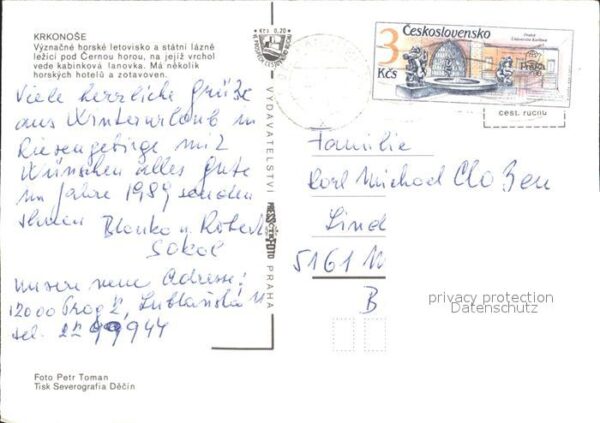 KRKONOŠE
Význačné horské letovisko a státní lázně
ležící pod Černou horou, na jejíž vrchol
vede kabinková lanovka. Má několik
horských hotelů a zotavoven.
Viele herzliche Grüße
aus Winterurlaub in
Riesengebirge mit
Wünschen alles Gute
im Jahre 1989 senden
Ihnen Blanka u. Robert
SOKOL
Unsere neue Adresse:
12000 Prag 2, Lublaňská
tel.
Foto Petr Toman
Tisk Severografia Děčín
Kčs 0,20
VYDAVATELSTVÍ PRESSFOTO PRAHA
3 Kčs
Československo
Praha
cest. ruchu
Familie
Karl Michael
Lind
5161
B
privacy protection
Datenschutz